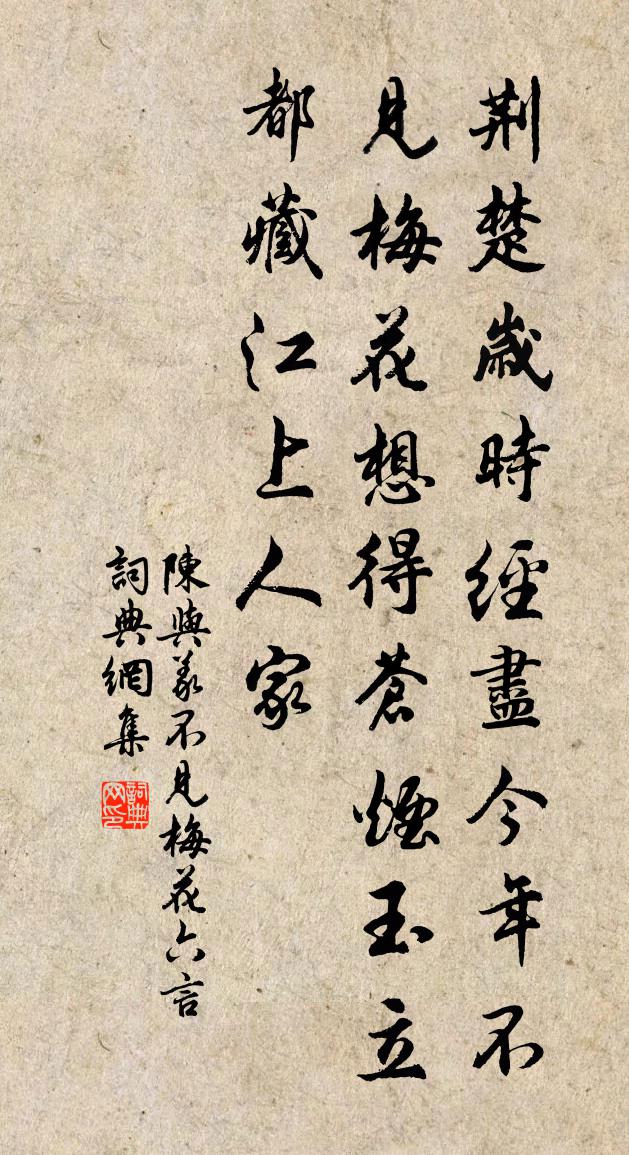 荆楚歲時經盡今年不
見梅花想得蒼煙玉立
都藏江上人家
陳與義不見梅花六言
詞典網集
詞典网印